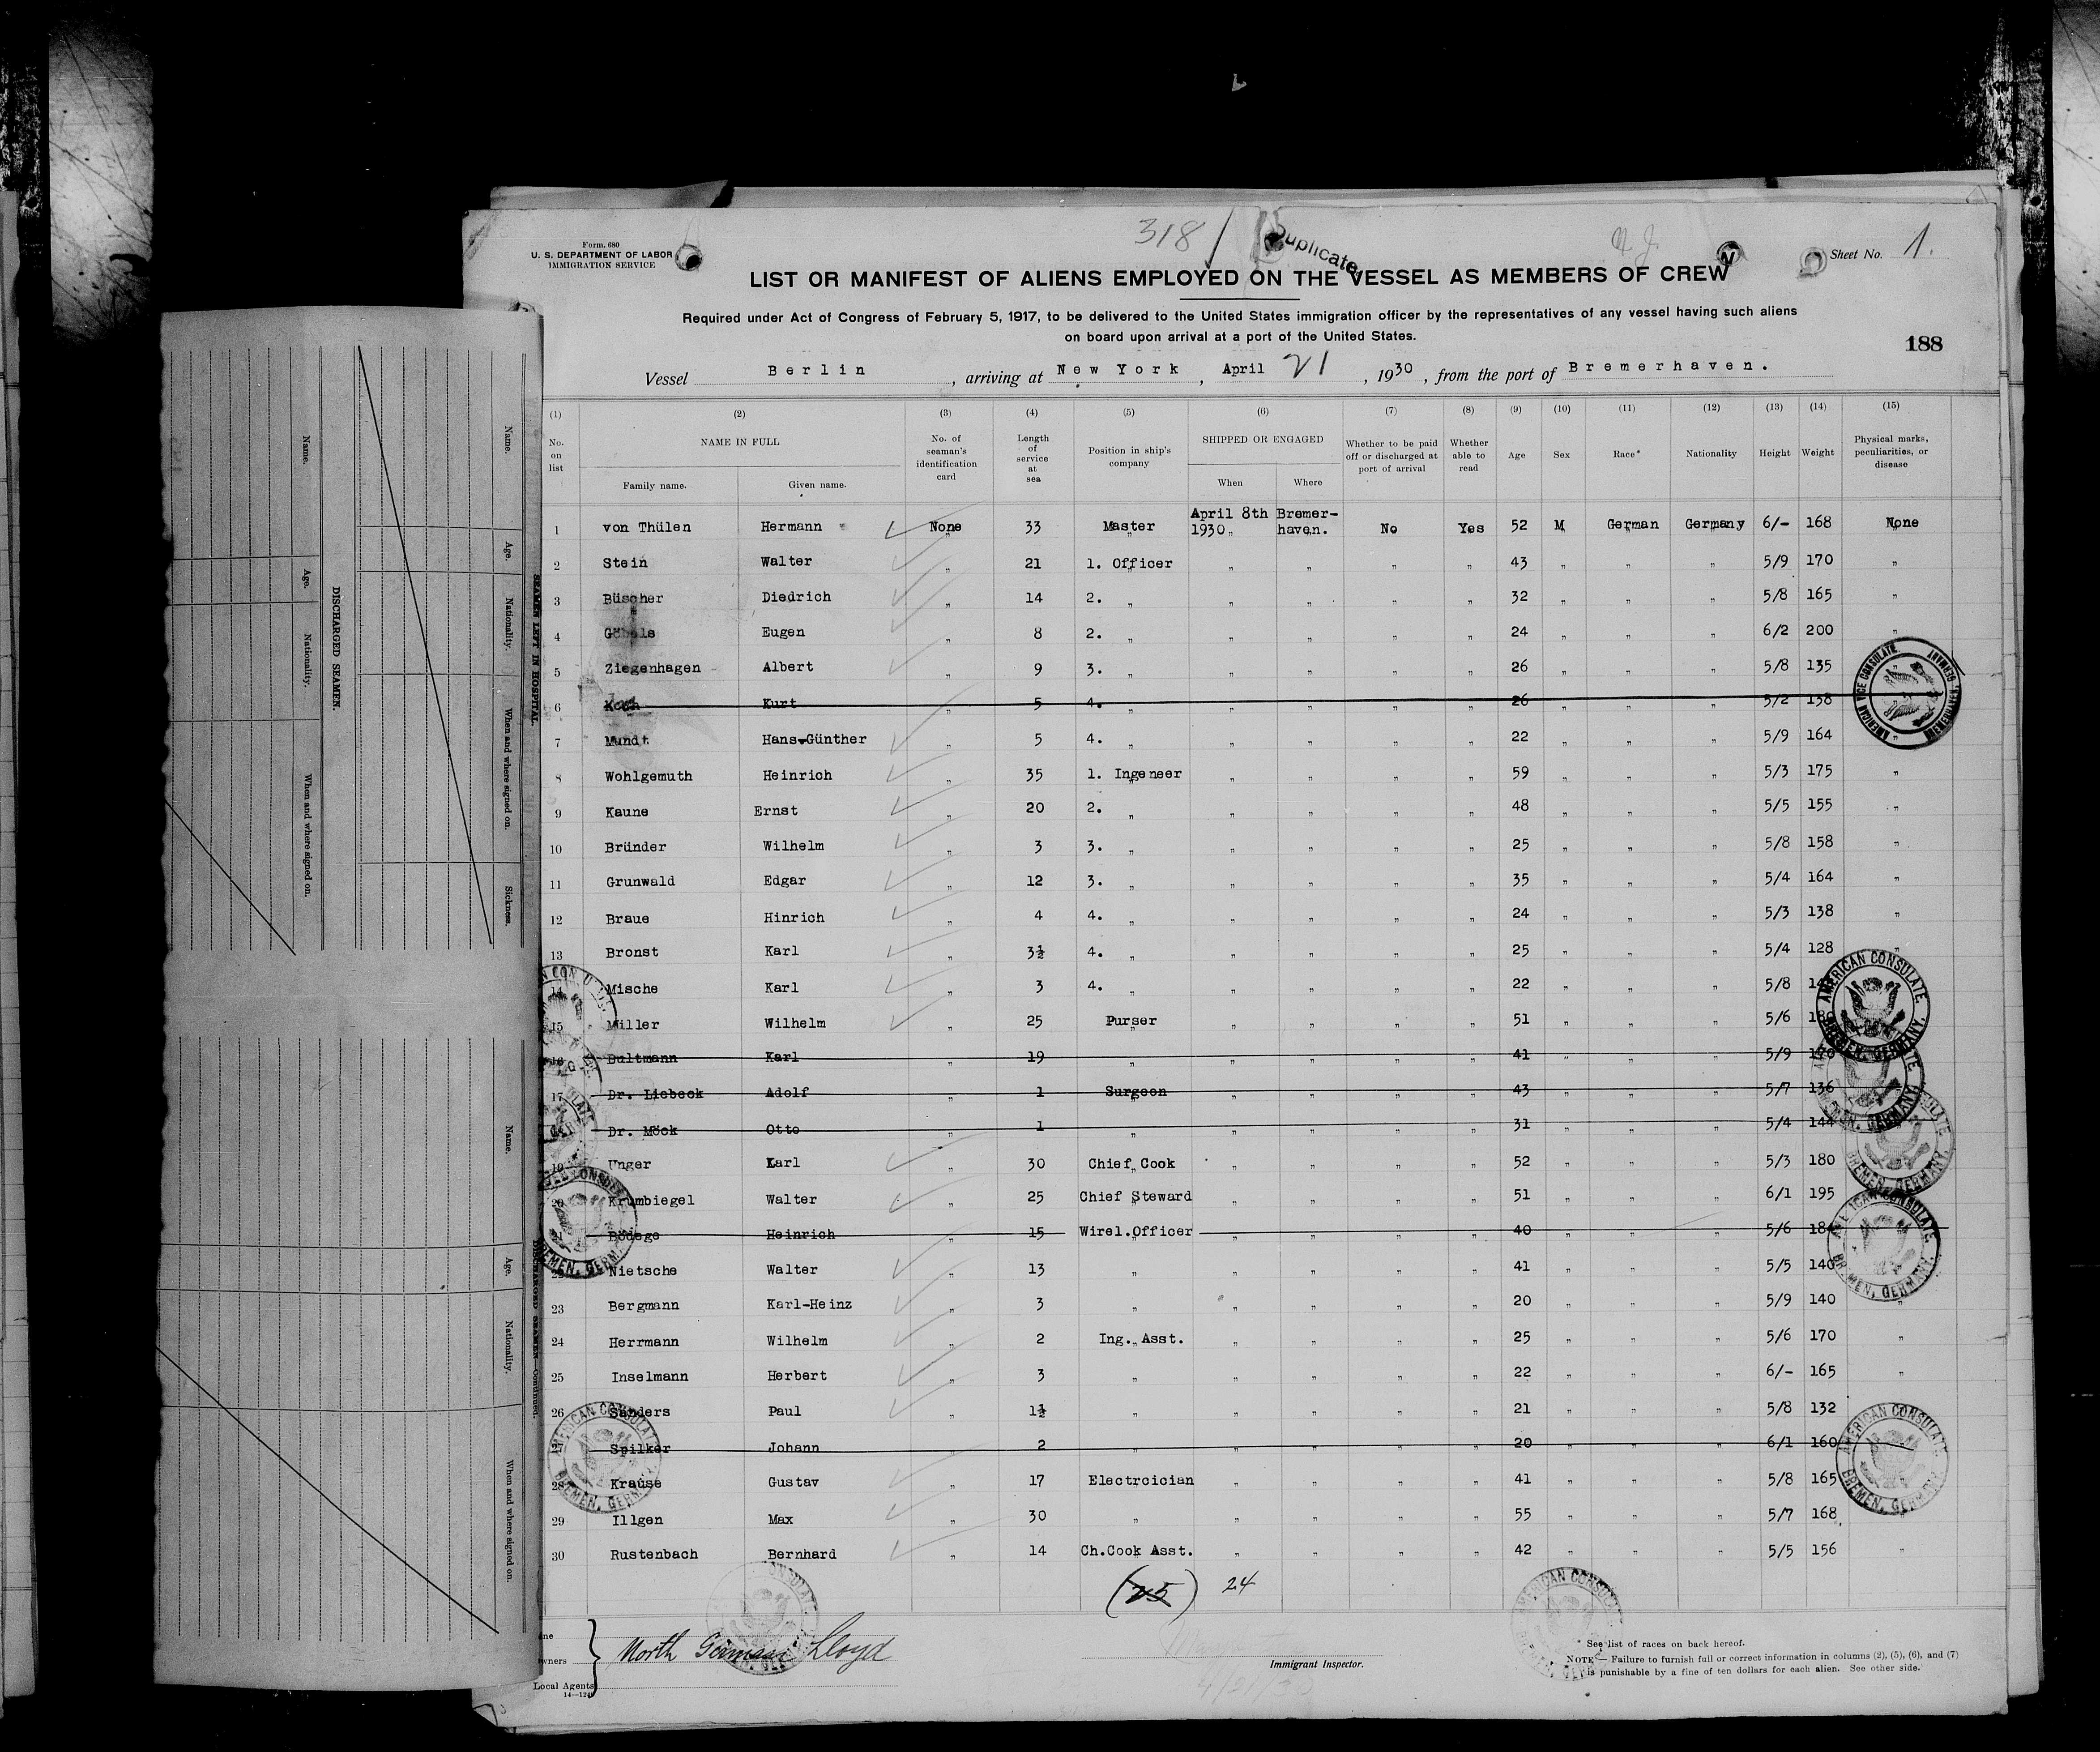 318
Duplicate
N. J.
Form. 680
U. S. DEPARTMENT OF LABOR
IMMIGRATION SERVICE
Sheet No. 1.
LIST OR MANIFEST OF ALIENS EMPLOYED ON THE VESSEL AS MEMBERS OF CREW
Required under Act of Congress of February 5, 1917, to be delivered to the United States immigration officer by the representatives of any vessel having such aliens
on board upon arrival at a port of the United States.
188
Vessel Berlin , arriving at New York , April 21 , 1930 , from the port of Bremerhaven.
(1) (2) (3) (4) (5) (6) (7) (8) (9) (10) (11) (12) (13) (14) (15)
No. on list
NAME IN FULL
Family name. Given name.
No. of seaman's identification card
Length of service at sea
Position in ship's company
SHIPPED OR ENGAGED
When Where
Whether to be paid off or discharged at port of arrival
Whether able to read
Age
Sex
Race*
Nationality
Height
Weight
Physical marks, peculiarities, or disease
1 von Thülen Hermann None 33 Master April 8th 1930. Bremerhaven. No Yes 52 M German Germany 6/- 168 None
2 Stein Walter " 21 1. Officer " " " " 43 " " " 5/9 170 "
3 Büscher Diedrich " 14 2. " " " " " 32 " " " 5/8 165 "
4 Göbels Eugen " 8 2. " " " " " 24 " " " 6/2 200 "
5 Ziegenhagen Albert " 9 3. " " " " " 26 " " " 5/8 135
6 Koch Kurt " 5 4. " " " " " 26 " " " 5/2 138
7 Mundt Hans-Günther " 5 4. " " " " " 22 " " " 5/9 164 "
8 Wohlgemuth Heinrich " 35 1. Ingeneer " " " " 59 " " " 5/3 175 "
9 Kaune Ernst " 20 2. " " " " " 48 " " " 5/5 155 "
10 Bründer Wilhelm " 3 3. " " " " " 25 " " " 5/8 158 "
11 Grunwald Edgar " 12 3. " " " " " 35 " " " 5/4 164 "
12 Braue Hinrich " 4 4. " " " " " 24 " " " 5/3 138 "
13 Bronst Karl " 3½ 4. " " " " " 25 " " " 5/4 128 "
14 Mische Karl " 3 4. " " " " " 22 " " " 5/8
15 Miller Wilhelm " 25 Purser " " " " 51 " " " 5/6 180
16 Bultmann Karl " 19 " " " " " 41 " " " 5/9 170
17 Dr. Liebeck Adolf " 1 Surgeon " " " " 43 " " " 5/7 136
18 Dr. Möck Otto " 1 " " " " " 31 " " " 5/4 144
19 Unger Karl " 30 Chief Cook " " " " 52 " " " 5/3 180
20 Krumbiegel Walter " 25 Chief Steward " " " " 51 " " " 6/1 195
21 Bödege Heinrich " 15 Wirel.Officer " " " " 40 " " " 5/6 184
22 Nietsche Walter " 13 " " " " " 41 " " " 5/5 140
23 Bergmann Karl-Heinz " 3 " " " " " 20 " " " 5/9 140 "
24 Herrmann Wilhelm " 2 Ing. Asst. " " " " 25 " " " 5/6 170 "
25 Inselmann Herbert " 3 " " " " " 22 " " " 6/- 165 "
26 Sanders Paul " 1½ " " " " " 21 " " " 5/8 132
27 Spilker Johann " 2 " " " " " 20 " " " 6/1 160
28 Krause Gustav " 17 Electrcician " " " " 41 " " " 5/8 165
29 Illgen Max " 30 " " " " " 55 " " " 5/7 168
30 Rustenbach Bernhard " 14 Ch.Cook Asst. " " " " 42 " " " 5/5 156 "
(25) 24
North German Lloyd
Local Agents
14—124
Immigrant Inspector.
4/21/30
* See list of races on back hereof.
NOTE.—Failure to furnish full or correct information in columns (2), (5), (6), and (7)
is punishable by a fine of ten dollars for each alien. See other side.
AMERICAN VICE CONSULATE. BREMERHAVEN, GERMANY
AMERICAN CONSULATE. BREMEN, GERMANY.
SEAMEN LEFT IN HOSPITAL.
Name. Age. Nationality. When and where signed on. Sickness.
DISCHARGED SEAMEN.
Name. Age. Nationality. When and where signed on.
DISCHARGED SEAMEN—Continued.
Name. Age. Nationality. When and where signed on.